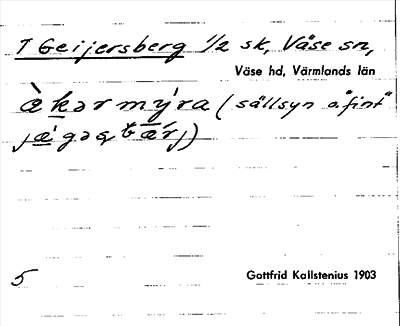 T Geijersberg 1/2 sk, Väse sn,
Väse hd, Värmlands län
æ̀kərmýra (sällsyn o. "fint"
jǽgəq, bǽrj)
5
Gottfrid Kallstenius 1903